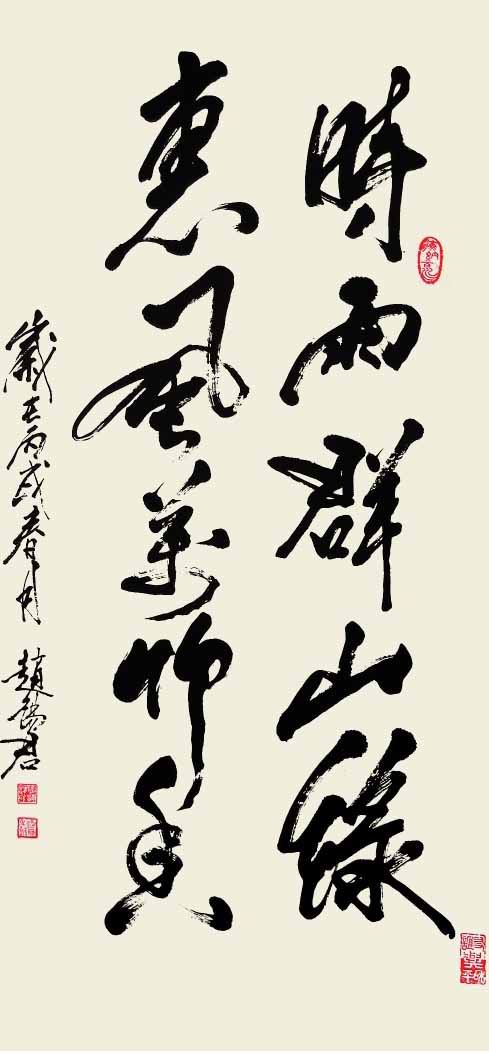 時雨群山綠
惠風萬物香
歲在丙戌春月 趙君